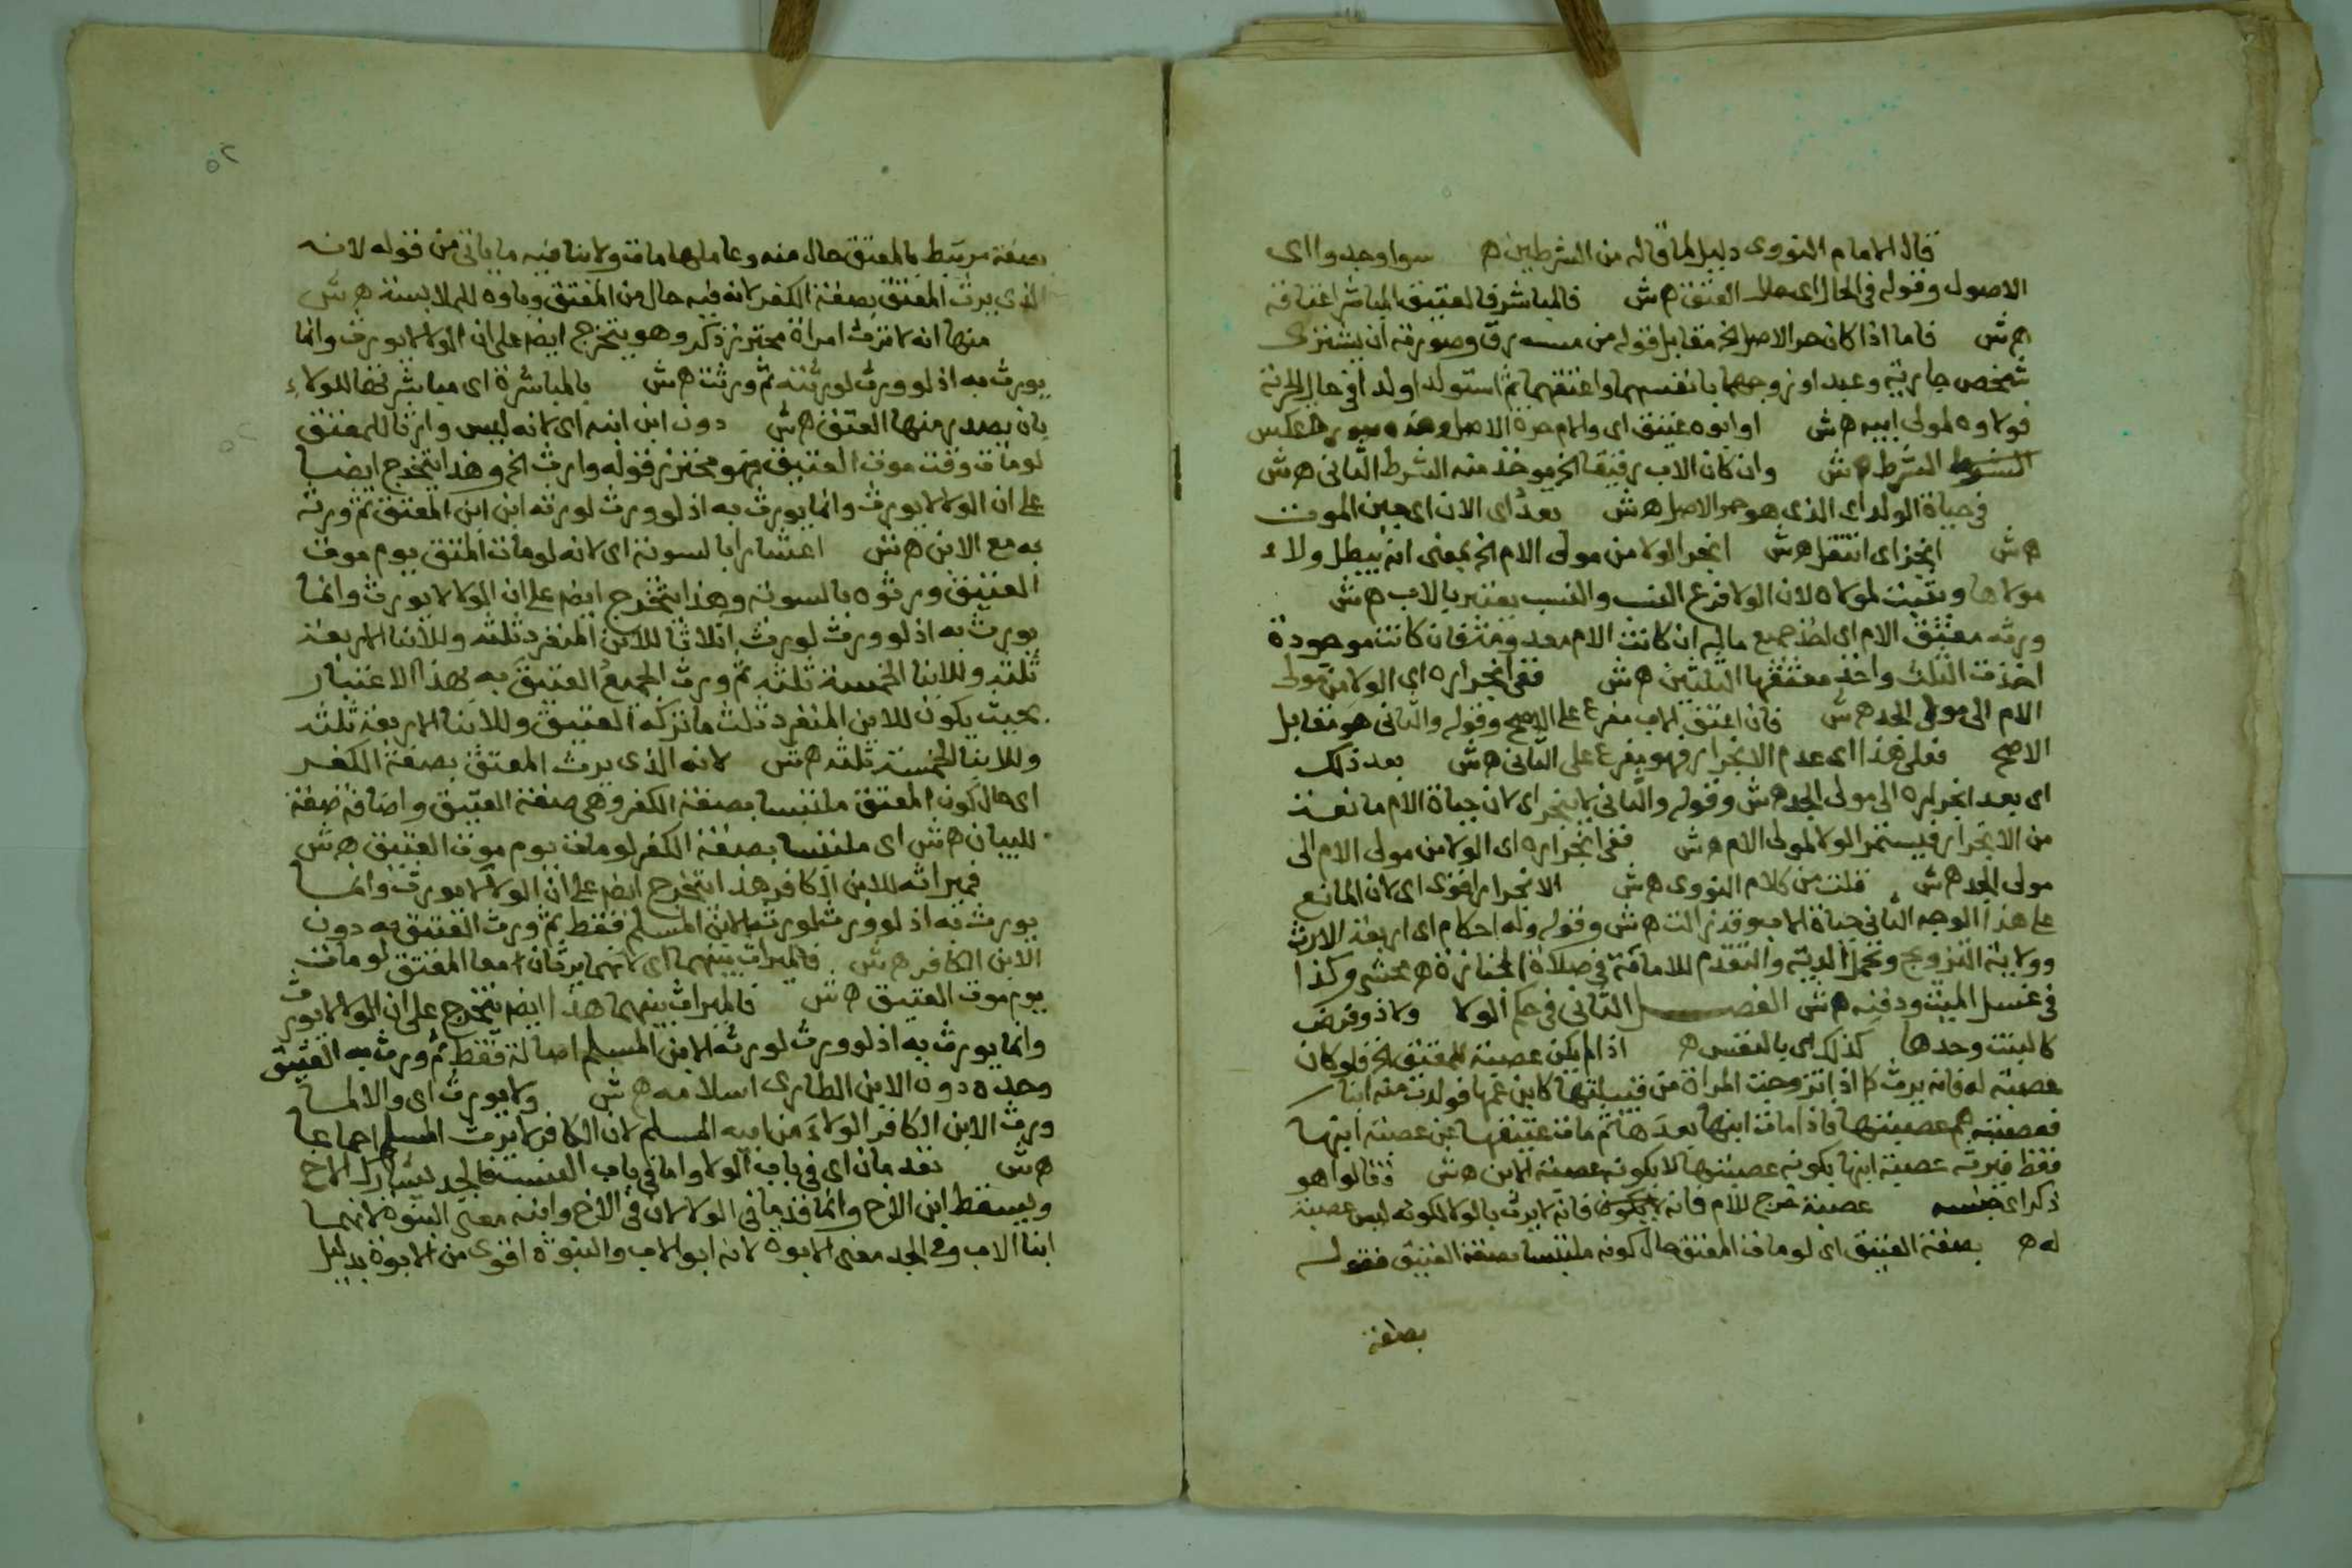 قال الامام النووى دليل لما قاله من الشرطين ه سوا وجدوا اى
الاصول وقوله فى الحال اى حال العتق ه ش فالمباشر فالعتيق المباشر اعتاقه
ه ش فاما اذا كان حر الاصل الخ مقابل قوله من مسه رق وصورته ان يشترى
شخص جارية وعبدا و زوجهما بانفسهما واعتقهما ثم استولد اولدا فى حال الحرية
فولاوه لمولى ابيه ه ش او ابوه عتيق اى والام حرة الاصل وهذه صورة عكس
الشرط ه ش وان كان الاب رقيقا الخ يوخذ منه الشرط الثانى ه ش
فى حياة الولد اى الذى هو حر الاصل ه ش بعد اى الان اى حين الموت
ه ش انجر اى انتقل ه ش انجر الولا من مولى الام الخ بمعنى انه يبطل ولاء
مولاها ويثبت لمولاه لان الولا فرع النسب والنسب يعتبر بالاب ه ش
ورثه معتق الام اى اخذ جميع ماله ان كانت الام فان كانت موجودة
اخذت الثلث واخذ معتقها الثلثين ه ش ففى انجراره اى الولا من مولى
الام الى مولى الجد ه ش فان اعتق الاب مفرع على الاصح وقوله والثانى هو مقابل
الاصح فعلى هذا اى عدم الانجرار فهو مفرع على الثانى ه ش بعد ذلك
اى بعد انجراره الى مولى الجد ه ش وقوله والثانى لا ينجر اى لان حياة الام مانعة
من الانجرار فيستمر الولا لمولى الام ه ش ففى انجراره اى الولا من مولى الام الى
مولى الجد ه ش قلت من كلام النووى ه ش الانجرار اقوى اى لان المانع
على هذا الوجه الثانى حياة الاب وقد زالت ه ش وقوله وله احكام اى اربعة الارث
وولاية التزويج وتحمل الدية والتقدم للامامة فى صلاة الجنازة ه محشى وكذا
فى غسل الميت ودفنه ه ش الفصل الثانى فى حكم الولا ولا ذو فرض
كالبنت وحدها كذلك اى بالنفس ه اذا لم يكن عصبة للمعتق الخ فلو كان
عصبة له فانه يرث كما اذا تزوجت المراة من قبيلتها كابن عمها فولدت منه ابنا
فعصبته هم عصبتها فاذا مات ابنها بعدها ثم مات عتيقها عن عصبة ابنها
فقط فيرثه عصبة ابنها بكونه عصبتها لا بكونه عصبة الابن ه ش فقالوا هو
ذكر اى جنسه عصبة خرج للام فانه لا يرث بالولا لكونه ليس عصبة
له ه بصفة العتيق اى لو مات المعتق حال كونه ملتبسا بصفة العتيق فقوله
بصفة
٥٢
بصفة مرتبط بالمعتق حال منه وعاملها مات ولا ينافيه ما ياتى من قوله لانه
الذى يرث المعتق بصفة الكفر لانه فيه حال من المعتق وباوه للملابسة ه ش
منها انه لا ترث امراة محترز ذكر وهو يتخرج ايض على ان الولا لا يورث وانما
يورث به اذ لو ورث لورثته ثم ورثت ه ش بالمباشرة اى مباشرتها للولاء
بان يصدر منها العتق ه ش دون ابن ابنه اى لانه ليس وارثا للمعتق
لو مات وقت موت العتيق فهو محترز قوله وارث الخ وهذا يتخرج ايضا
على ان الولا لا يورث وانما يورث به اذ لو ورث لورثه ابن ابن المعتق ثم ورثه
به مع الابن ه ش اعشارا بالسوية اى لانه لو مات المتق يوم موت
العتيق ورثوه بالسوية وهذا يتخرج ايض على ان الولا لا يورث وانما
يورث به اذ لو ورث لورث اثلاثا للابن المنفرد ثلثه وللابنا الاربعة
ثلثه وللابنا الخمسة ثلثه ثم ورث الجميع العتيق به بهذا الاعتبار
بحيث يكون للابن المنفرد ثلث ما تركه العتيق وللابنا الاربعة ثلثه
وللابنا الخمسة ثلثه ه ش لانه الذى يرث المعتق بصفة الكفر
اى حال كون المعتق ملتبسا بصفة الكفر وهى صفة العتيق واضافة صفة
للبيان ه ش اى ملتبسا بصفة الكفر لو مات يوم موت العتيق ه ش
فميراثه للابن الكافر هذا يتخرج ايض على ان الولا لا يورث وانما
يورث به اذ لو ورث لورثه الابن المسلم فقط ثم ورث العتيق به دون
الابن الكافر ه ش فالميراث بينهما اى لانهما يرثان معا المعتق لو مات
يوم موت العتيق ه ش فالميراث بينهما هذا ايض يتخرج على ان الولا لا يورث
وانما يورث به اذ لو ورث لورثه الابن المسلم اصالة فقط ثم ورث به العتيق
وحده دون الابن الطارى اسلامه ه ش ولا يورث اى والا لما
ورث الابن الكافر الولاء من ابيه المسلم لان الكافر لا يرث المسلم اجماعا
ه ش يقدمان اى فى باب الولا واما فى باب النسب فالجد يشارك الاخ
ويسقط ابن الاخ وانما قدما فى الولا لان فى الاخ وابنه معنى البنوة لانهما
ابنا الاب وفى الجد معنى الابوة لانه ابو الاب والبنوة اقوى من الابوة بدليل